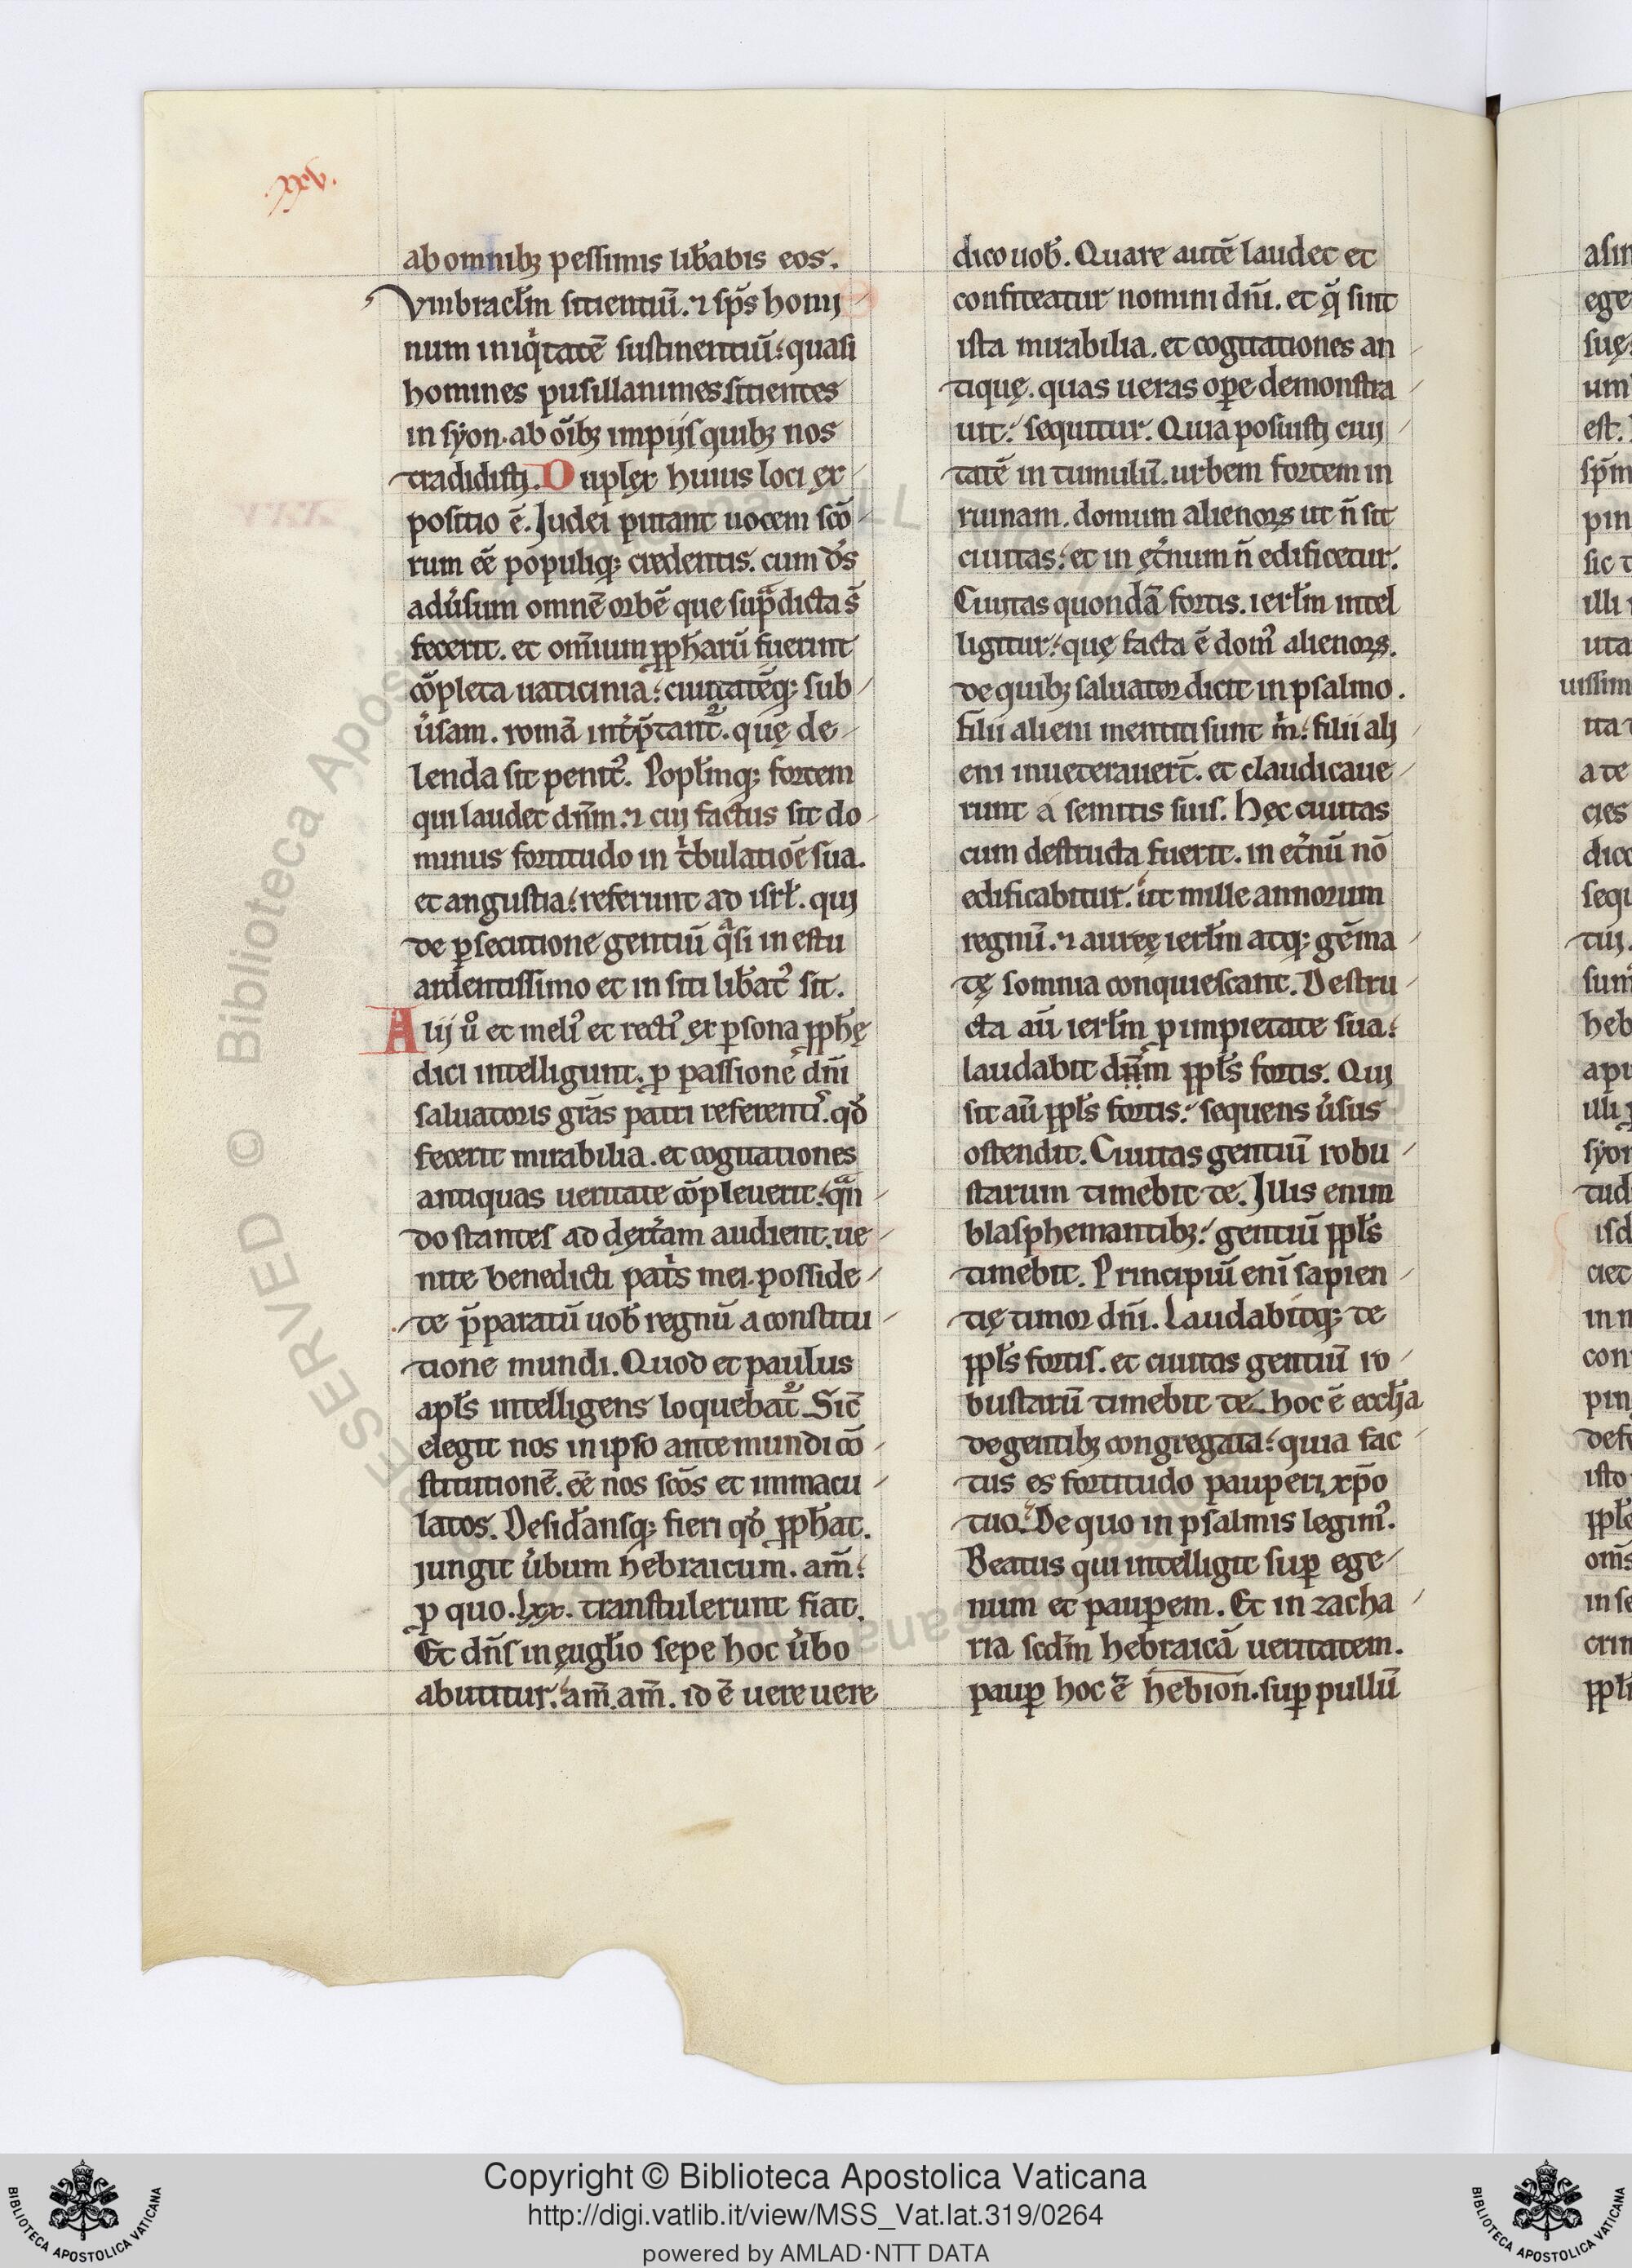 .xxv.
ab omnibꝫ pessimis lib̄abis eos.
Vmbracl̄m sitientiū. ⁊ sp̄s homi
num iniqͥtatē sustinentiū: quasi
homines pusillanimes sitientes
in syon. ab oīb; impijs quibꝫ nos
tradidisti. Duplex huius loci ex
positio ē. Iudei putant uocem sc̄o
rum eē populiqꝫ credentis. cum d̾s
adu̾sum omnē orbē que sup̄dicta s̄
fecerit. et omīum ꝓph̄arū fuerint
cōpleta uaticinia: ciuitatēqꝫ sub
u̾sam. romā int̾p̄tant᷑. quę de
lenda sit penit᷒. Popl̄mqꝫ fortem
qui laudet dn̄m. ⁊ cui factus sit do
minus fortitudo in tͥbulatiōe sua.
et angustia: referunt ad isrl̄. qui
de ꝑsecutione gentiū qͣsi in estu
ardentissimo et in siti lib̄at᷒ sit.
Alij uͦ et meli᷒ et recti᷒ ex ꝑsona ꝓph̄ę
dici intelligunt. ꝓ passione dn̄i
saluatoris gr̄as patri referentͥs. qd̾
fecerit mirabilia. et cogitationes
antiquas ueritate cōpleuerit: qͣn
do stantes ad dext̾am audient. ue
nite benedicti patͥs mei. posside
te p̄paratū uob̄ regnū a constitu
tione mundi. Quod et paulus
apl̄s intelligens loquebat᷑. Sic̄
elegit nos in ipso ante mundi cō
stitutionē. eē nos sc̄os et immacu
latos. Desid̾ansqꝫ fieri qd̾ ꝓph̄at.
iungit u̾bum hebraicum. am̄:
ꝓ quo .lxx. transtulerunt fiat.
Et dn̄s in ęugl̄io sepe hoc u̾bo
abutitur: am̄. am̄. id ē uere uere
dico uob̄. Quare autē laudet et
confiteatur nomini dn̄i. et q̄ sint
ista mirabilia. et cogitationes an
tiquę. quas ueras oꝑe demonstra
uit: sequitur. Quia posuisti ciui
tatē in tumulū. urbem fortem in
ruinam. domum alienoꝝ ut n̄ sit
ciuitas: et in ęt̾num n̄ edificetur.
Ciuitas quondā fortis. ierl̄m intel
ligitur: quę facta ē dom᷒ alienoꝝ.
de quibꝫ saluator dicit in psalmo.
Filii alieni mentiti sunt m̄: filii ali
eni inueterauer̄t. et claudicaue
runt a semitis suis. Hęc ciuitas
cum destructa fuerit. in et̾nū nō
edificabitur. ut mille annorum
regnū. ⁊ aureę ierl̄m atqꝫ gēma
tę somnia conquiescant. Destru
cta aū ierl̄m ꝓ impietate sua:
laudabit dn̄m ppl̄s fortis. Qui
sit aū ppl̄s fortis: sequens u̾sus
ostendit. Ciuitas gentiū robu
starum timebit te. Illis enim
blasphemantibꝫ: gentiū ppl̄s
timebit. Principiū enī sapien
tię timor dn̄i. Laudabitqꝫ te
ppl̄s fortis. et ciuitas gentiū ro
bustarū timebit te. hoc ē eccl̄ia
de gentibꝫ congregata: quia fac
tus es fortitudo pauperi xp̄o
tuo. De quo in psalmis legim᷒.
Beatus qui intelligit suꝑ ege
num et pauꝑem. Et in zacha
ria scd̄m hebraicā ueritatem.
pauꝑ hoc ē hebion. suꝑ pullū
Copyright © Biblioteca Apostolica Vaticana
http://digi.vatlib.it/view/MSS_Vat.lat.319/0264
powered by AMLAD·NTT DATA